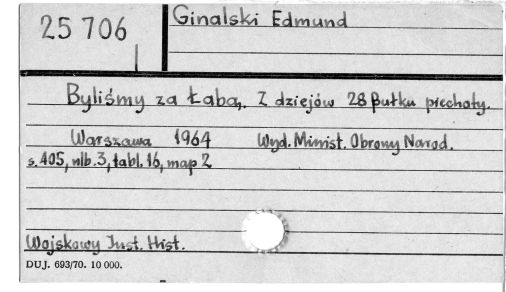 25 706
Ginalski Edmund
Byliśmy za Łabą. Z dziejów 28 Pułku piechoty.
Warszawa 1964 Wyd. Minist. Obrony Narod.
s. 405, nlb. 3, tabl. 16, map 2
Wojskowy Inst. Hist.
DUJ. 693/70. 10 000.